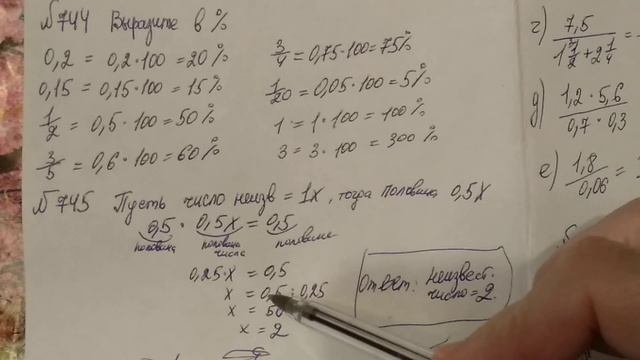 №744 Выразите в %
0,2 = 0,2·100 = 20%
0,15 = 0,15·100 = 15%
1/2 = 0,5·100 = 50%
3/5 = 0,6·100 = 60%
3/4 = 0,75·100 = 75%
1/20 = 0,05·100 = 5%
1 = 1·100 = 100%
3 = 3·100 = 300%
№745 Пусть число неизв = 1x, тогда половина 0,5x
0,5 · 0,5x = 0,5
половина половина числа половине
0,25·x = 0,5
x = 0,5 : 0,25
x = 50
x = 2
Ответ: неизвест.
число = 2.
г) 7,5 / =
д) 1,2·5,6 / 0,7·0,3
е) 1,8 / 0,06 =